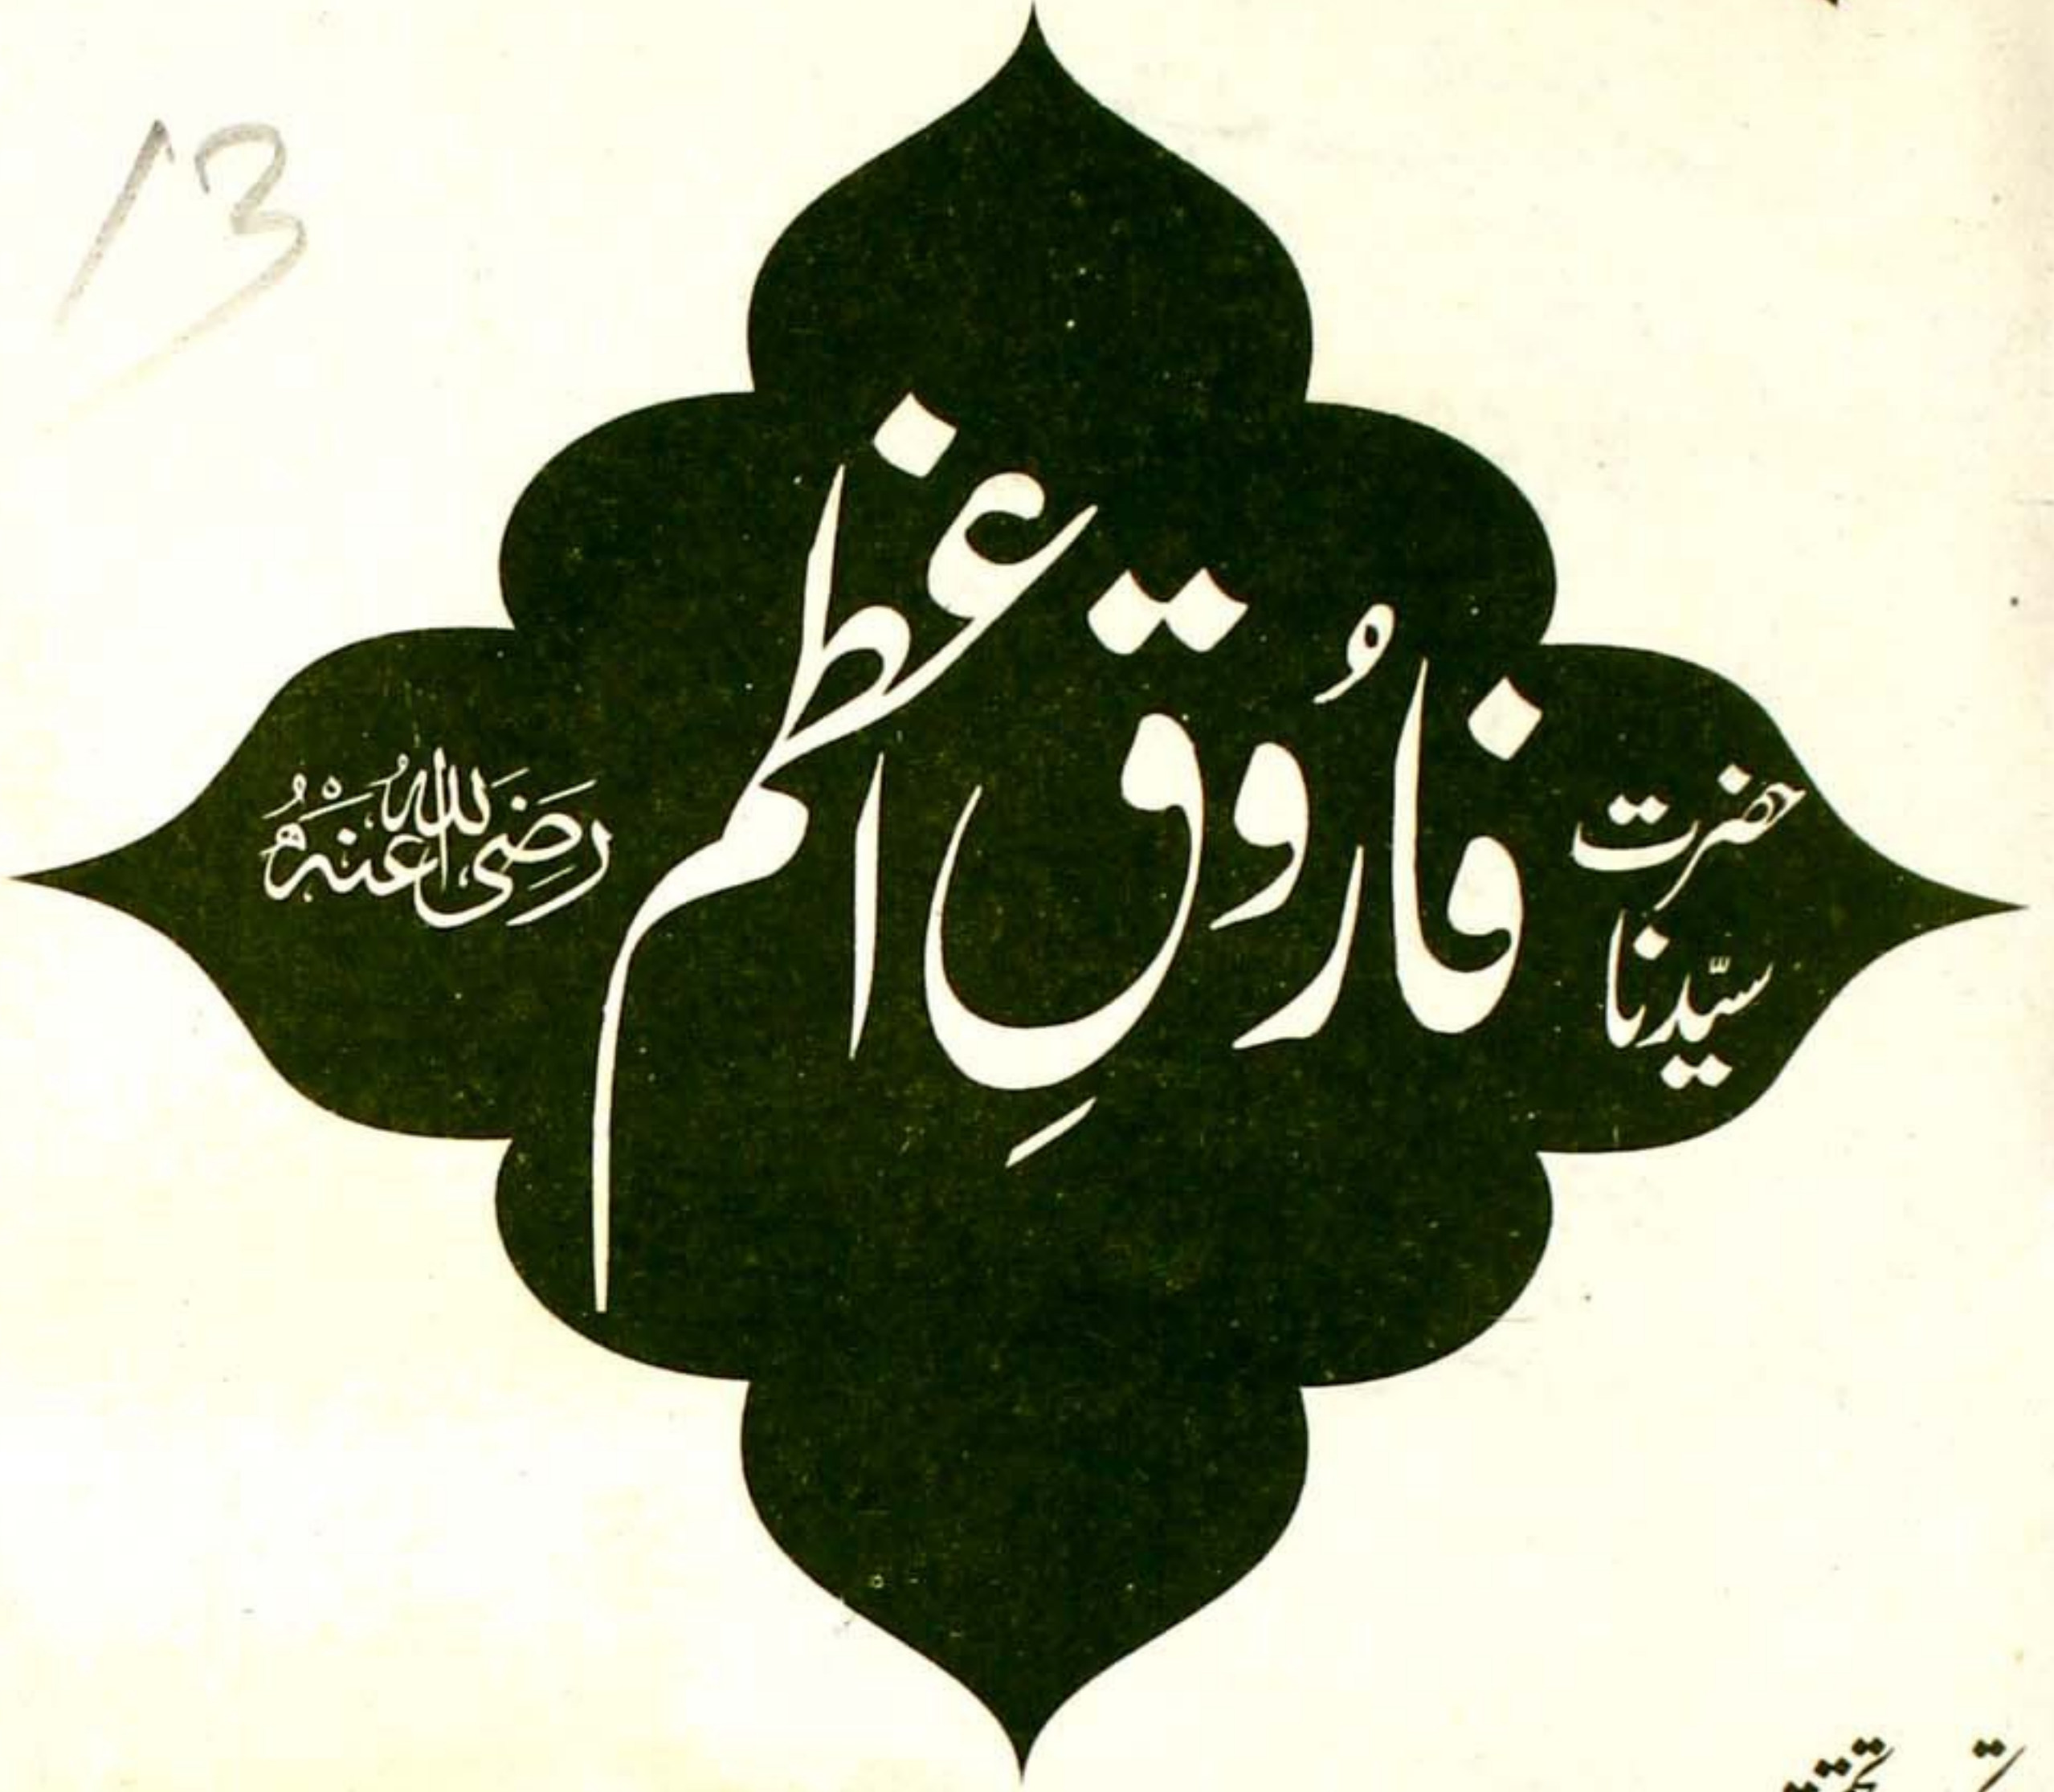 13
حضرت
سیّدنا
فارُوقِ اعظم
رَضِیَ اللہُ عَنْہُ